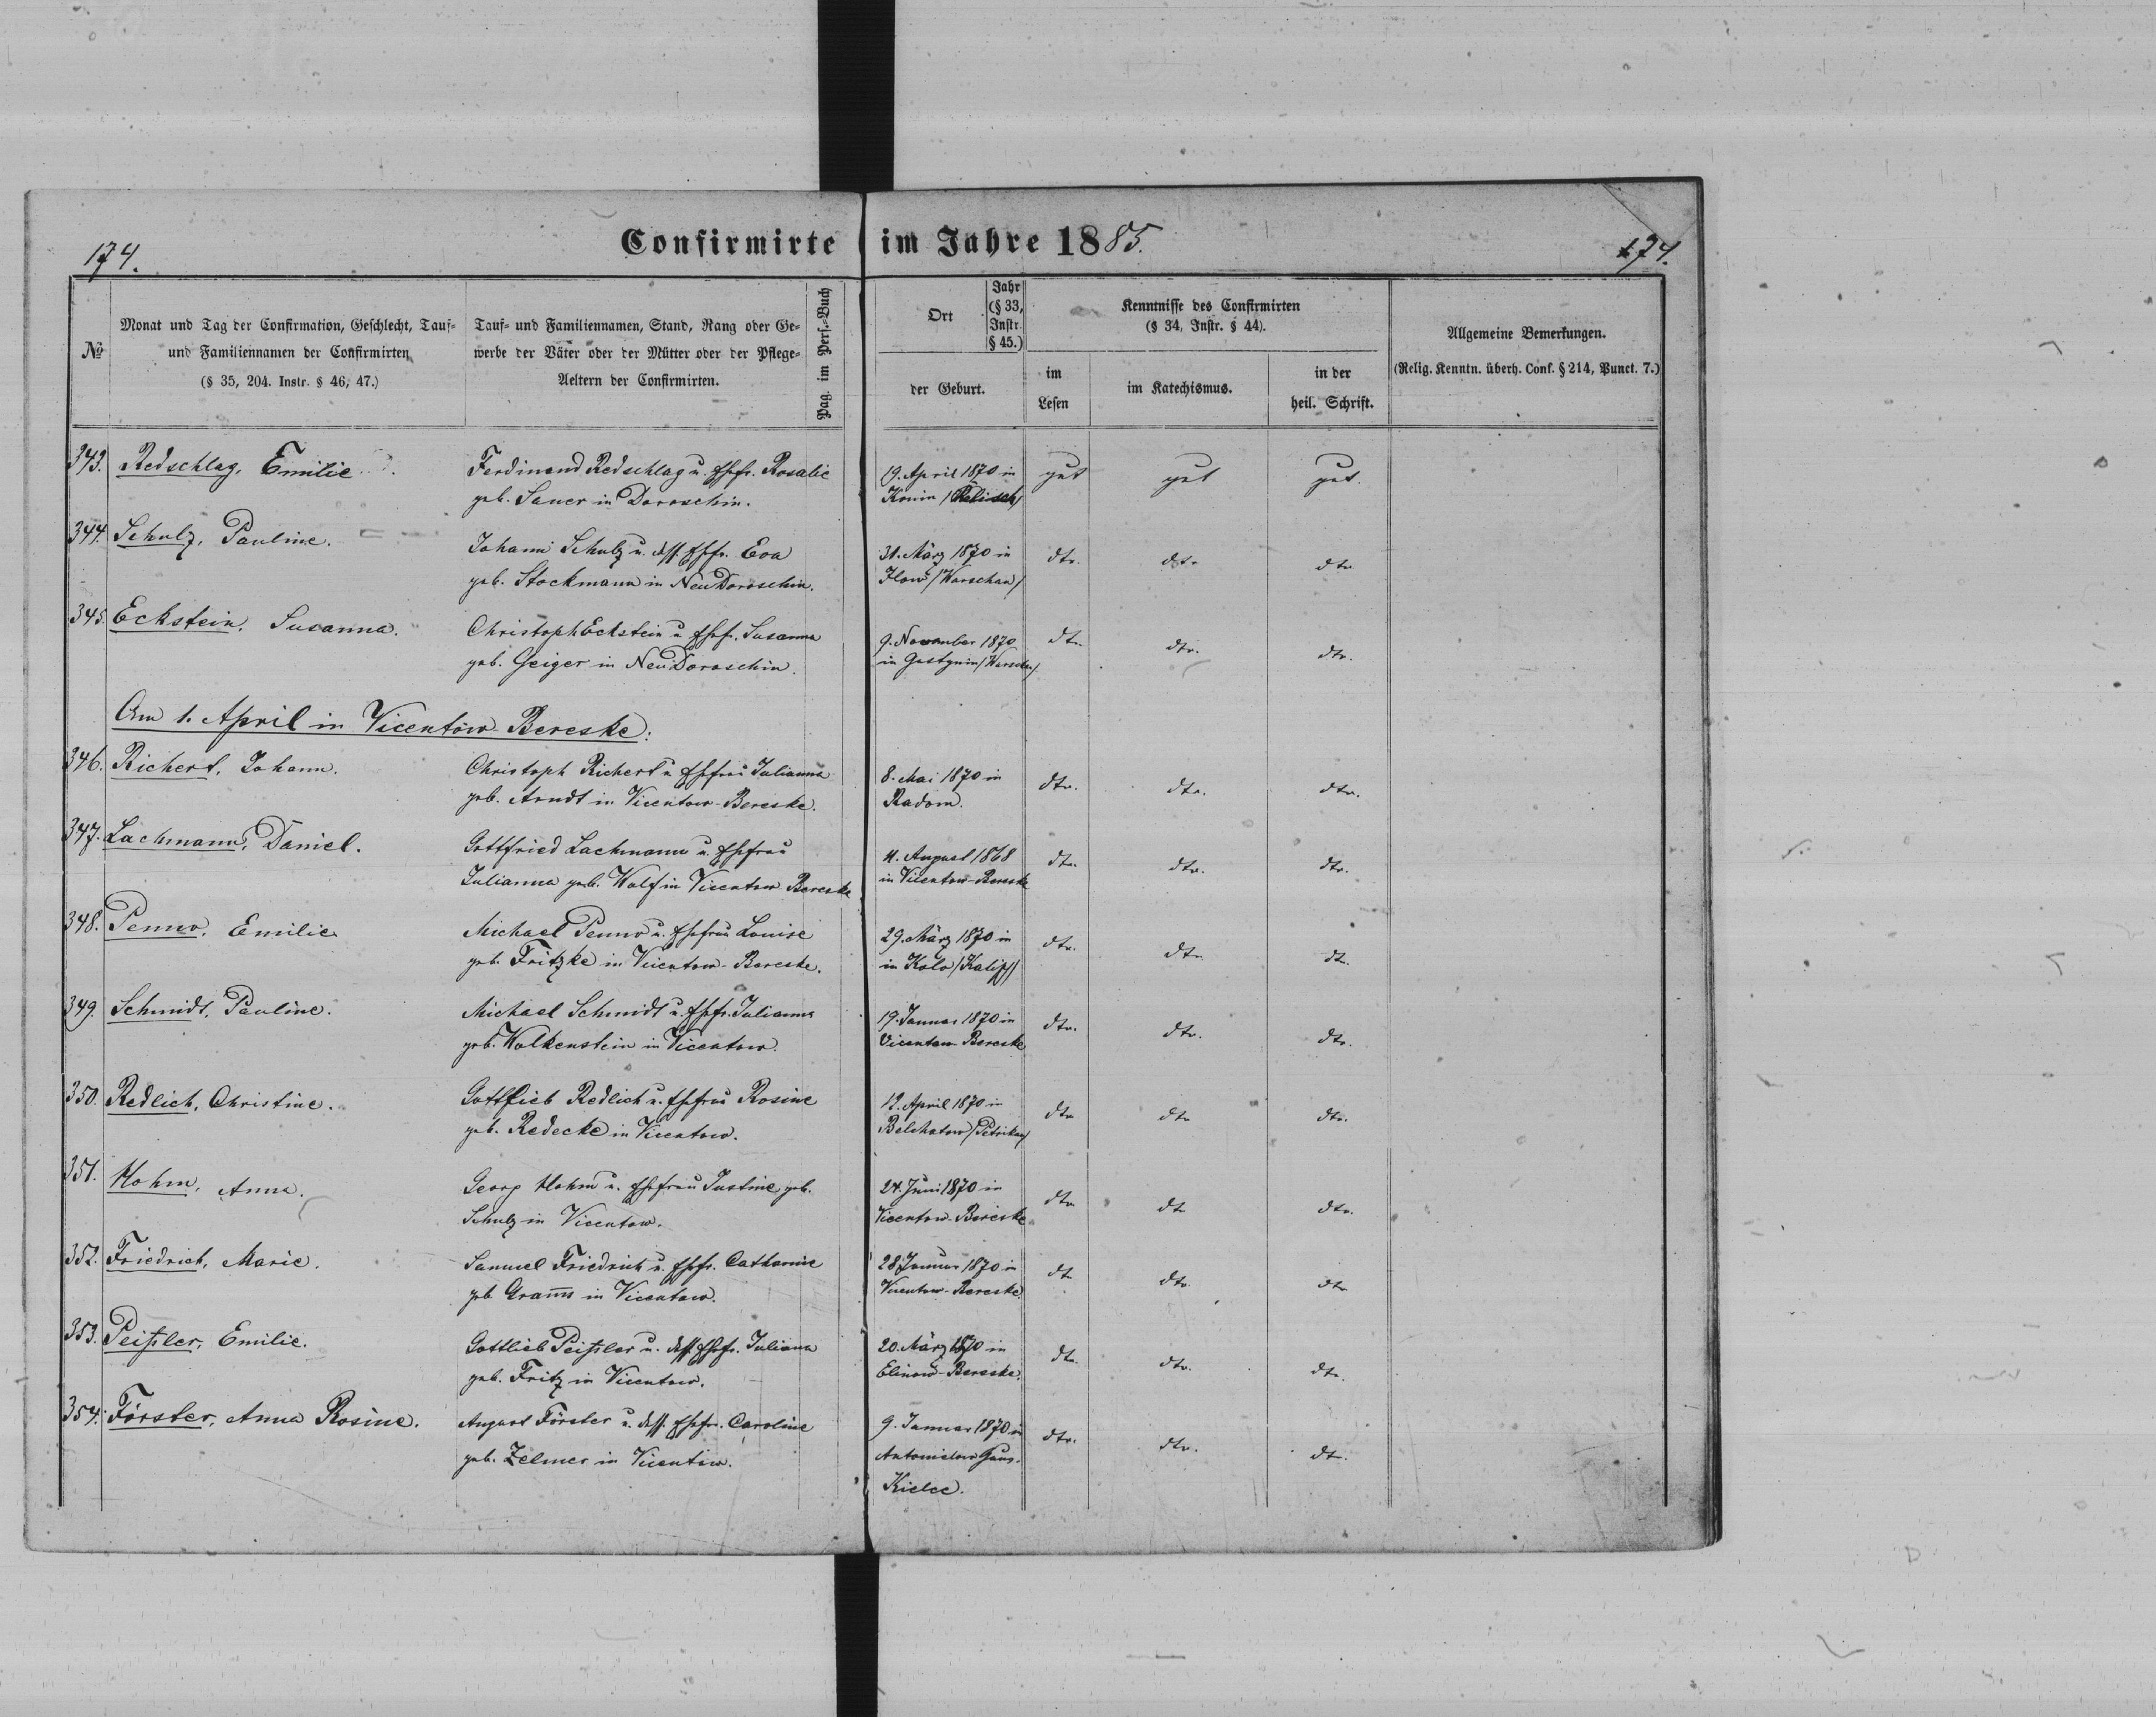 174.
Confirmirte im Jahre 1885.
174.
No
Monat und Tag der Confirmation, Geschlecht, Tauf-
und Familiennamen der Confirmirten
(§ 35, 204. Instr. § 46, 47.)
Tauf- und Familiennamen, Stand, Rang oder Ge-
werbe der Väter oder der Mütter oder der Pflege-
Aeltern der Confirmirten.
Pag. im Pers.-Buch
Ort
Jahr
(§ 33,
Instr.
§ 45.)
der Geburt.
Kenntnisse des Confirmirten
(§ 34, Instr. § 44).
im
Lesen
im Katechismus.
in der
heil. Schrift.
Allgemeine Bemerkungen.
(Relig. Kenntn. überh. Conf. § 214, Punct. 7.)
343. Redschlag, Emilie
Ferdinand Redschlag u. Ehefr. Rosalie
geb. Sauer in Doroschin.
19. April 1870 in
Konin /Kalisch/
gut gut gut.
344. Schulz, Pauline.
Johann Schulz u. dess. Ehefr. Eva
geb. Stockmann in Neu Doroschin.
31. März 1870 in
Ilow /Warschau/
dto. dto. dto
345. Eckstein, Susanna.
Christoph Eckstein u Ehefr. Susanna
geb. Geiger in Neu Doroschin.
9. November 1870
in Gostynin /Warschau/
dto. dto. dto.
Am 1. April in Vicentow-Bereske:
346. Richert, Johann.
Christoph Richert u Ehefrau Julianna
geb. Arndt in Vicentow-Bereske.
8. Mai 1870 in
Radom.
dto. dto. dto.
347. Lachmann, Daniel.
Gottfried Lachmann u. Ehefrau
Julianna geb. Wolf in Vicentow Bereske
4. August 1868
in Vicentow-Bereske
dto. dto. dto.
348. Penno, Emilie
Michael Penno u. Ehefrau Louise
geb. Fritzke in Vicentow-Bereske.
29. März 1870 in
in Kolo /Kalisch/
dto. dto. dto.
349. Schmidt, Pauline.
Michael Schmidt u. Ehefr. Julianna
geb. Wolkenstein in Vicentow.
19. Januar 1870 in
Vicentow Bereske
dto. dto. dto.
350. Redlich, Christine.
Gottlieb Redlich u. Ehefrau Rosine
geb. Redecke in Vicentow.
12. April 1870 in
Belchatow /Petrikau/
dto dto dto.
351. Hohm, Anna.
Georg Hohm u. Ehefrau Justine geb.
Schulz in Vicentow.
24. Juni 1870 in
Vicentow-Bereske
dto dto dto.
352. Friedrich, Marie.
Samuel Friedrich u. Ehefr. Catharine
geb Gramms in Vicentow.
28 Januar 1870 in
Vicentow-Bereske
dto dto. dto
353. Peißler, Emilie.
Gottlieb Peißler u. dess. Ehefr. Juliana
geb. Fritz in Vicentow.
20. März 1870 in
Elinow-Bereske.
dto. dto. dto.
354. Förster, Anna Rosine.
August Förster u. dess. Ehefr. Caroline
geb. Zelmer in Vicentow.
9. Januar 1870 in
Gouv.
Kielce.
dto. dto. dto.